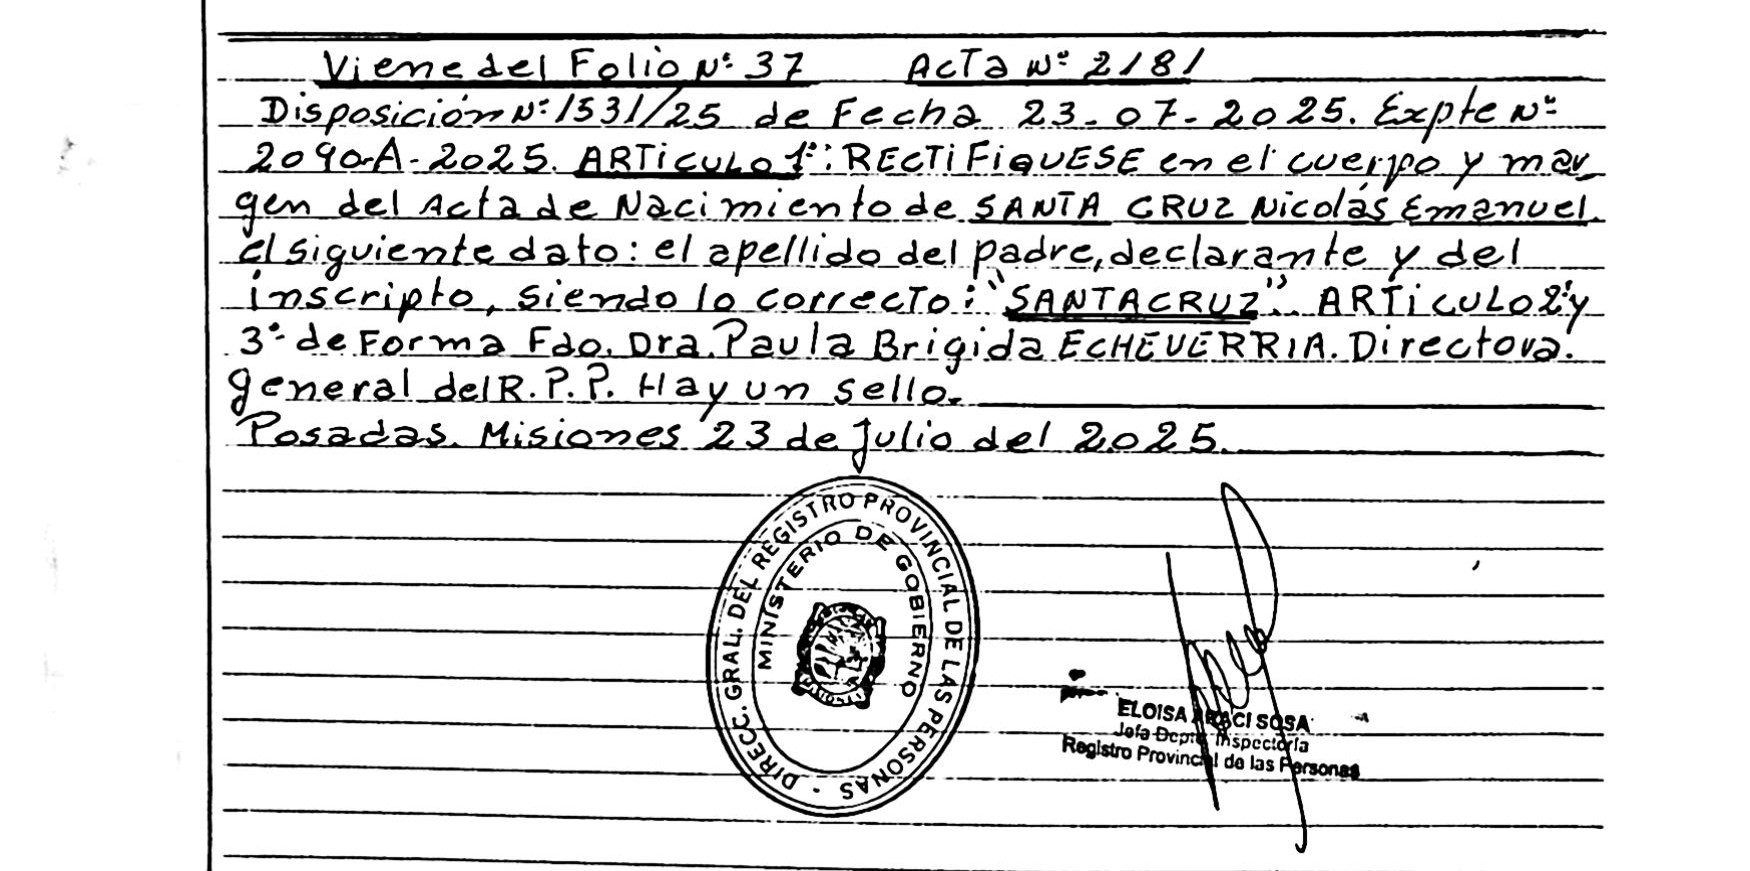 Viene del Folio Nº 37 Acta Nº 2181
Disposición Nº 1531/25 de Fecha 23-07-2025. Expte Nº
2090-A-2025. ARTICULO 1º: RECTIFIQUESE en el cuerpo y mar
gen del Acta de Nacimiento de SANTA CRUZ Nicolás Emanuel.
el siguiente dato: el apellido del padre, declarante y del
inscripto, siendo lo correcto: "SANTACRUZ". ARTICULO 2º y
3º de Forma Fdo. Dra. Paula Brigida ECHEVERRIA. Directora.
general del R.P.P. Hay un sello.
Posadas. Misiones 23 de Julio del 2025.
DIRECC. GRAL. DEL REGISTRO PROVINCIAL DE LAS PERSONAS -
MINISTERIO DE GOBIERNO
ELOISA ARACI SOSA
Jefa Depto Inspectoría
Registro Provincial de las Personas